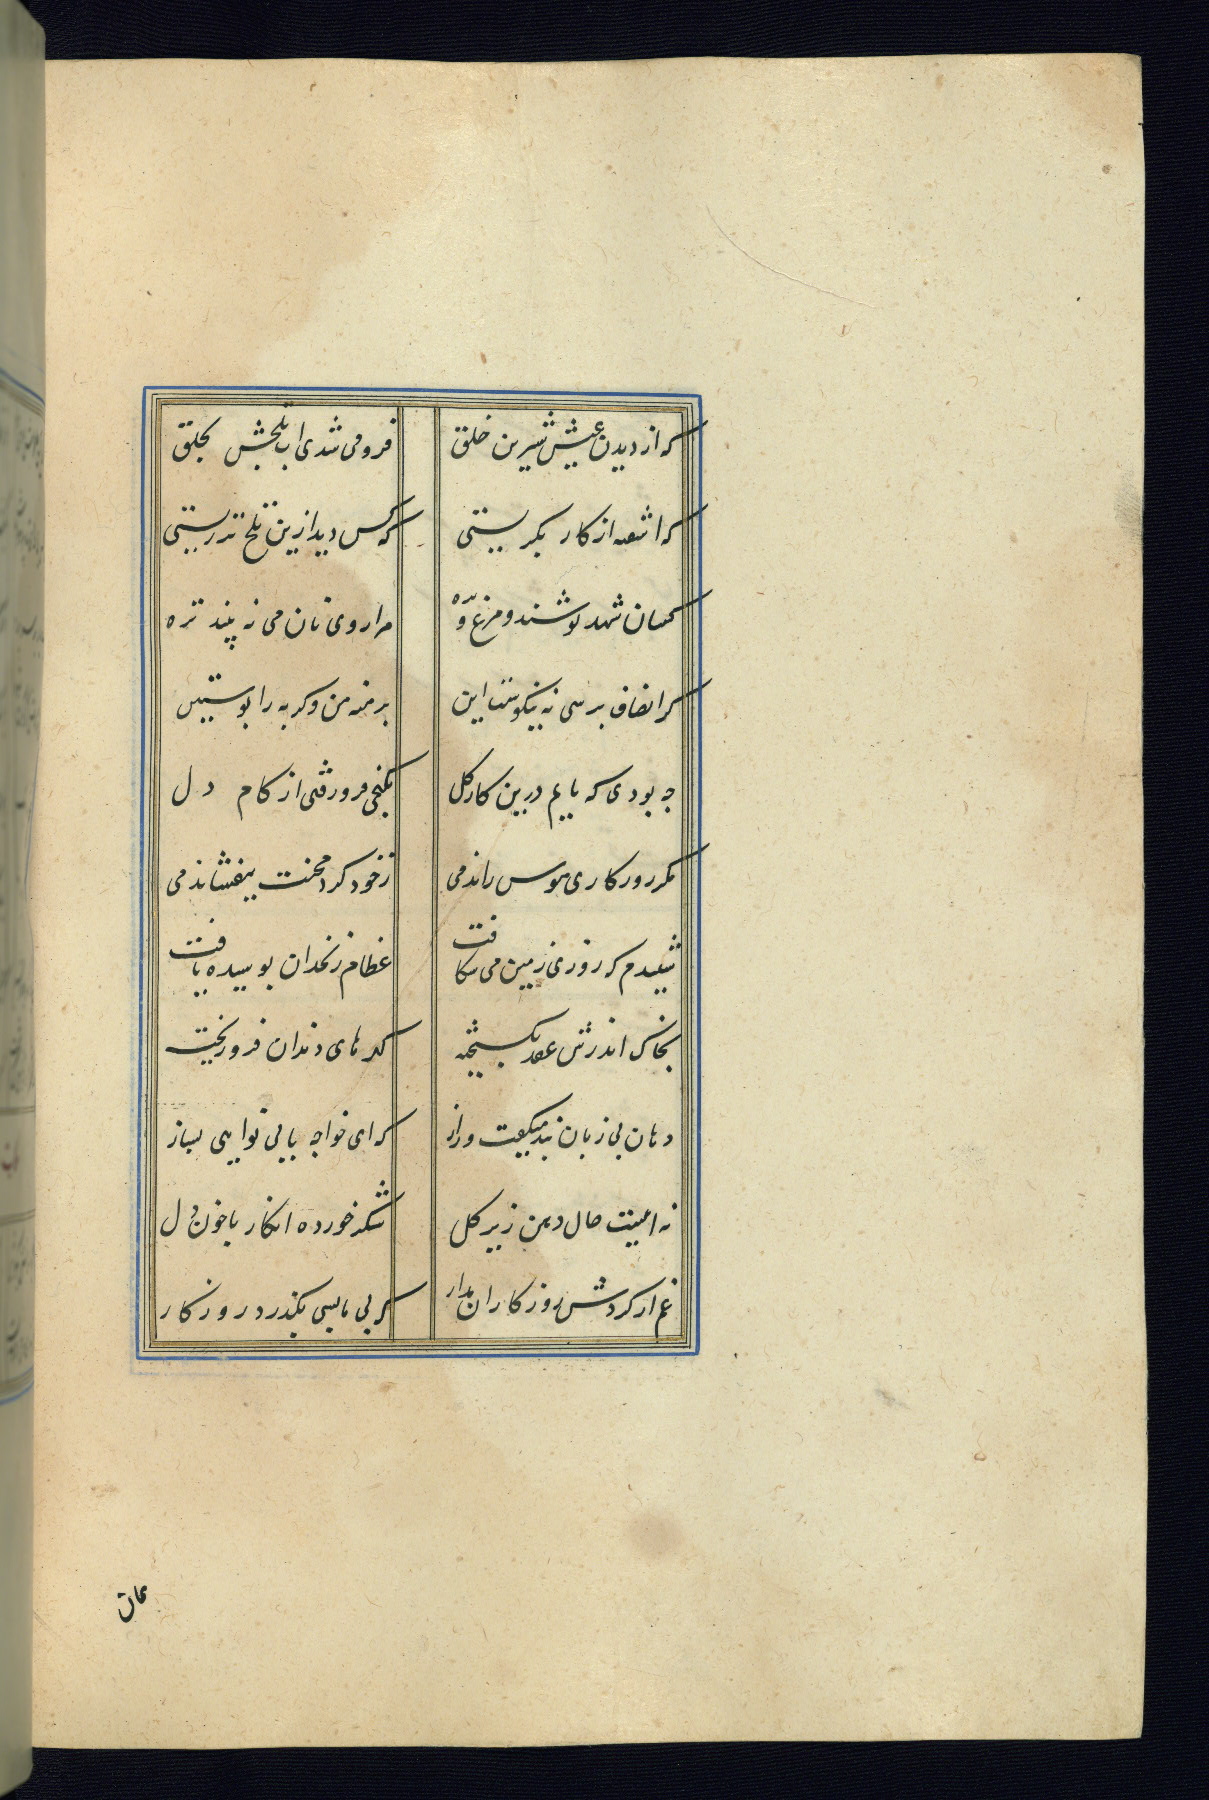 که از دیدن عیش شیرین خلق فرو می شدی اب تلخش بحلق
که اشفته از کار بکریستی که کس دید ازین تلخ تر زیستی
کسان شهد نوشند و مرغ و بره مرا روی نان می نه بیند تره
کر انصاف پرسی نه نیکوست این برهنه من و کربه را پوستین
چه بودی که پایم درین کار کل بکنجی فرو رفتی از کام دل
مکر روزکاری هوس راندمی زخود کرد محنت بیفشاندمی
شنیدم که روزی زمین می شکافت عظام زنخدان پوسیده یافت
بخاک اندرش عقد بکسیخته کهرهای دندان فرو ریخته
دهان بی زبان پند میکفت و راز که ای خواجه با بی نوایی بساز
نه اینست حال دهن زیر کل شکر خورده انکار یا خون دل
غم از کردش روزکاران مدار که بی ما بسی بکذرد روزکار
همان